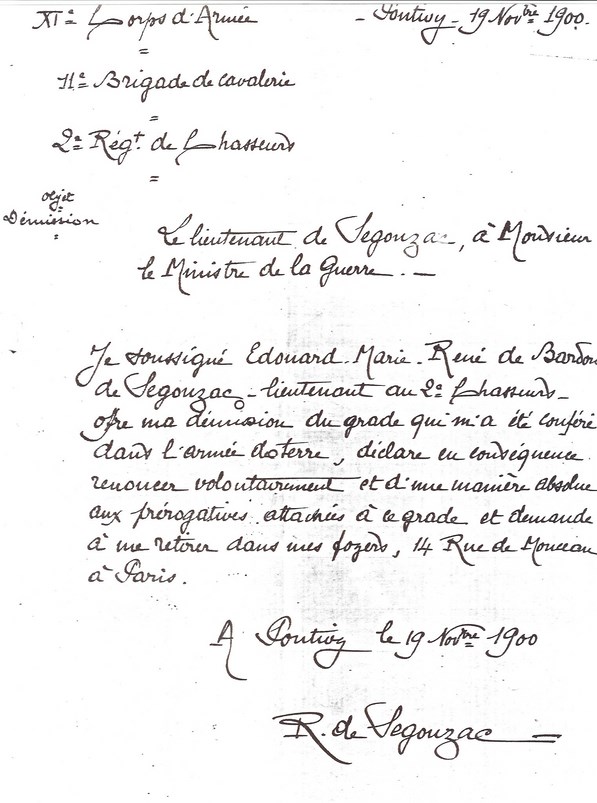 XIe Corps d'Armée
- Pontivy - 19 Novbre 1900.
=
11e Brigade de cavalerie
=
2e Régt de Chasseurs
=
objet
Démission
=
Le lieutenant de Segonzac, à Monsieur
le Ministre de la Guerre. -
Je soussigné Edouard-Marie-René de Bardon
de Segonzac - lieutenant au 2e Chasseurs -
offre ma démission du grade qui m'a été conféré
dans l'armée de terre, déclare en conséquence
renoncer volontairement et d'une manière absolue
aux prérogatives attachées à ce grade et demande
à me retirer dans mes foyers, 14 Rue de Monceau
à Paris.
A Pontivy le 19 Novbre 1900
R. de Segonzac